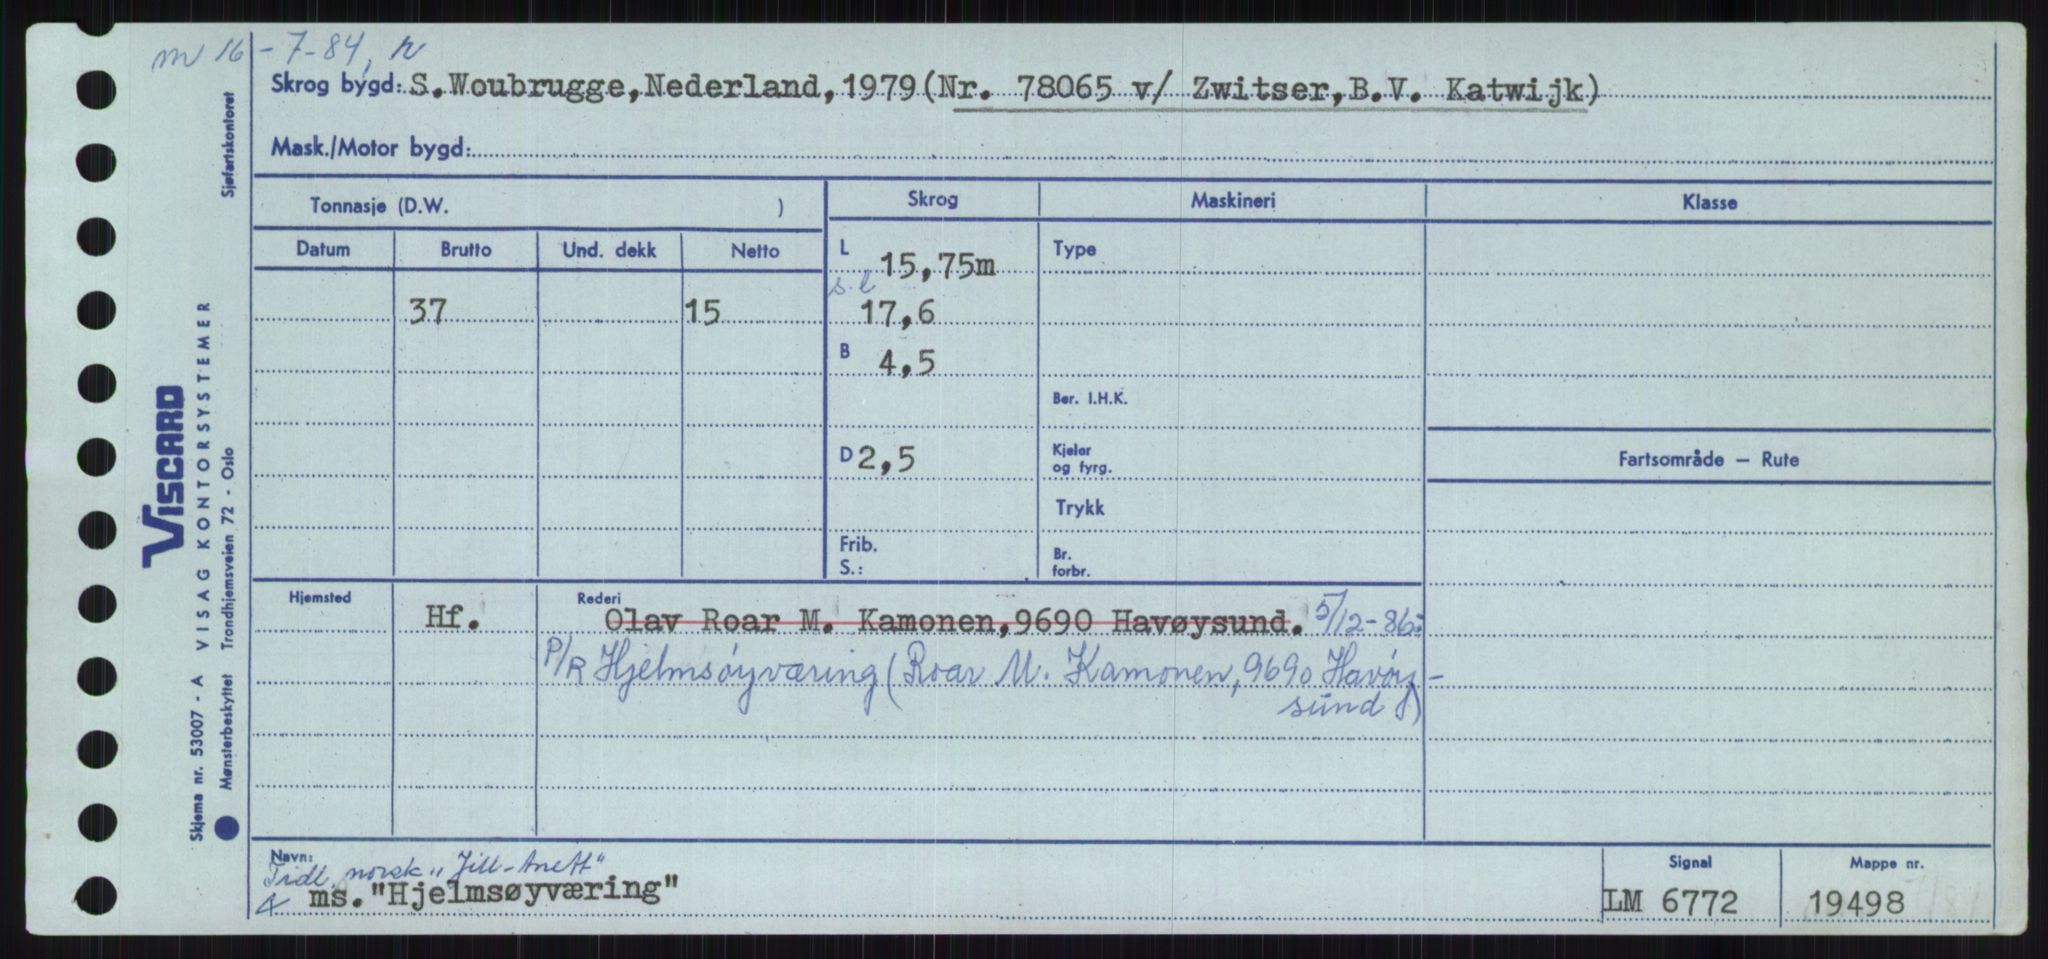 m 16-7-84, r
Skrog bygd: S.Woubrugge,Nederland,1979(Nr. 78065 v/ Zwitser,B.V. Katwijk)
Mask./Motor bygd:
Tonnasje (D.W. )
Skrog
Maskineri
Klasse
Datum Brutto Und. dekk Netto
L 15,75m
Type
s.l
37 15 17,6
B 4,5
Ber. I.H.K.
D 2,5
Kjeler
og fyrg.
Fartsområde – Rute
Trykk
Frib.
S.:
Br.
forbr.
Hjemsted
Rederi
Hf. Olav Roar M. Kamonen,9690 Havøysund. 5/12-86:
P/R Hjelmsøyværing (Roar M. Kamonen, 9690 Havøy-
sund)
Navn:
Tidl. norsk "Jill-Anett"
ms."Hjelmsøyværing"
Signal
LM 6772
Mappe nr.
19498
VISCARD
VISAG KONTORSYSTEMER
Skjema nr. 53007 - A
Mønsterbeskyttet Trondhjemsveien 72 - Oslo
Sjøfartskontoret